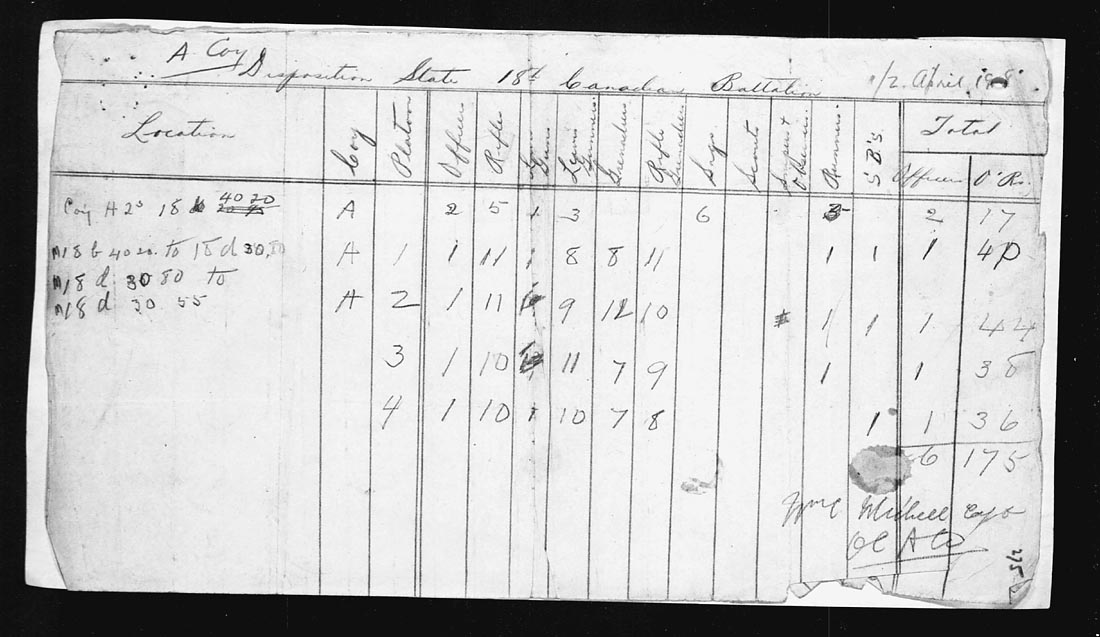 A Coy
Disposition State 18th Canadian Battalion 1/2 April
Location Coy Platoon Officers Rifles Guns Lewis Gunners Grenadiers Rifle Grenadiers Sigs Scouts Snipers & Observers Runners S.B's Total
Officers O'Rs.
Coy H Qs 18 b 40 20 A 2 5 1 3 6 3 2 17
M18 b 40 20. to 18 d 30,80 A 1 1 11 1 8 8 11 1 1 1 40
M18 d 30 80 to
M18 d 30 55 A 2 1 11 9 12 10 1 1 1 44
3 1 10 11 7 9 1 1 38
4 1 10 1 10 7 8 1 1 36
6 175
OC A Co